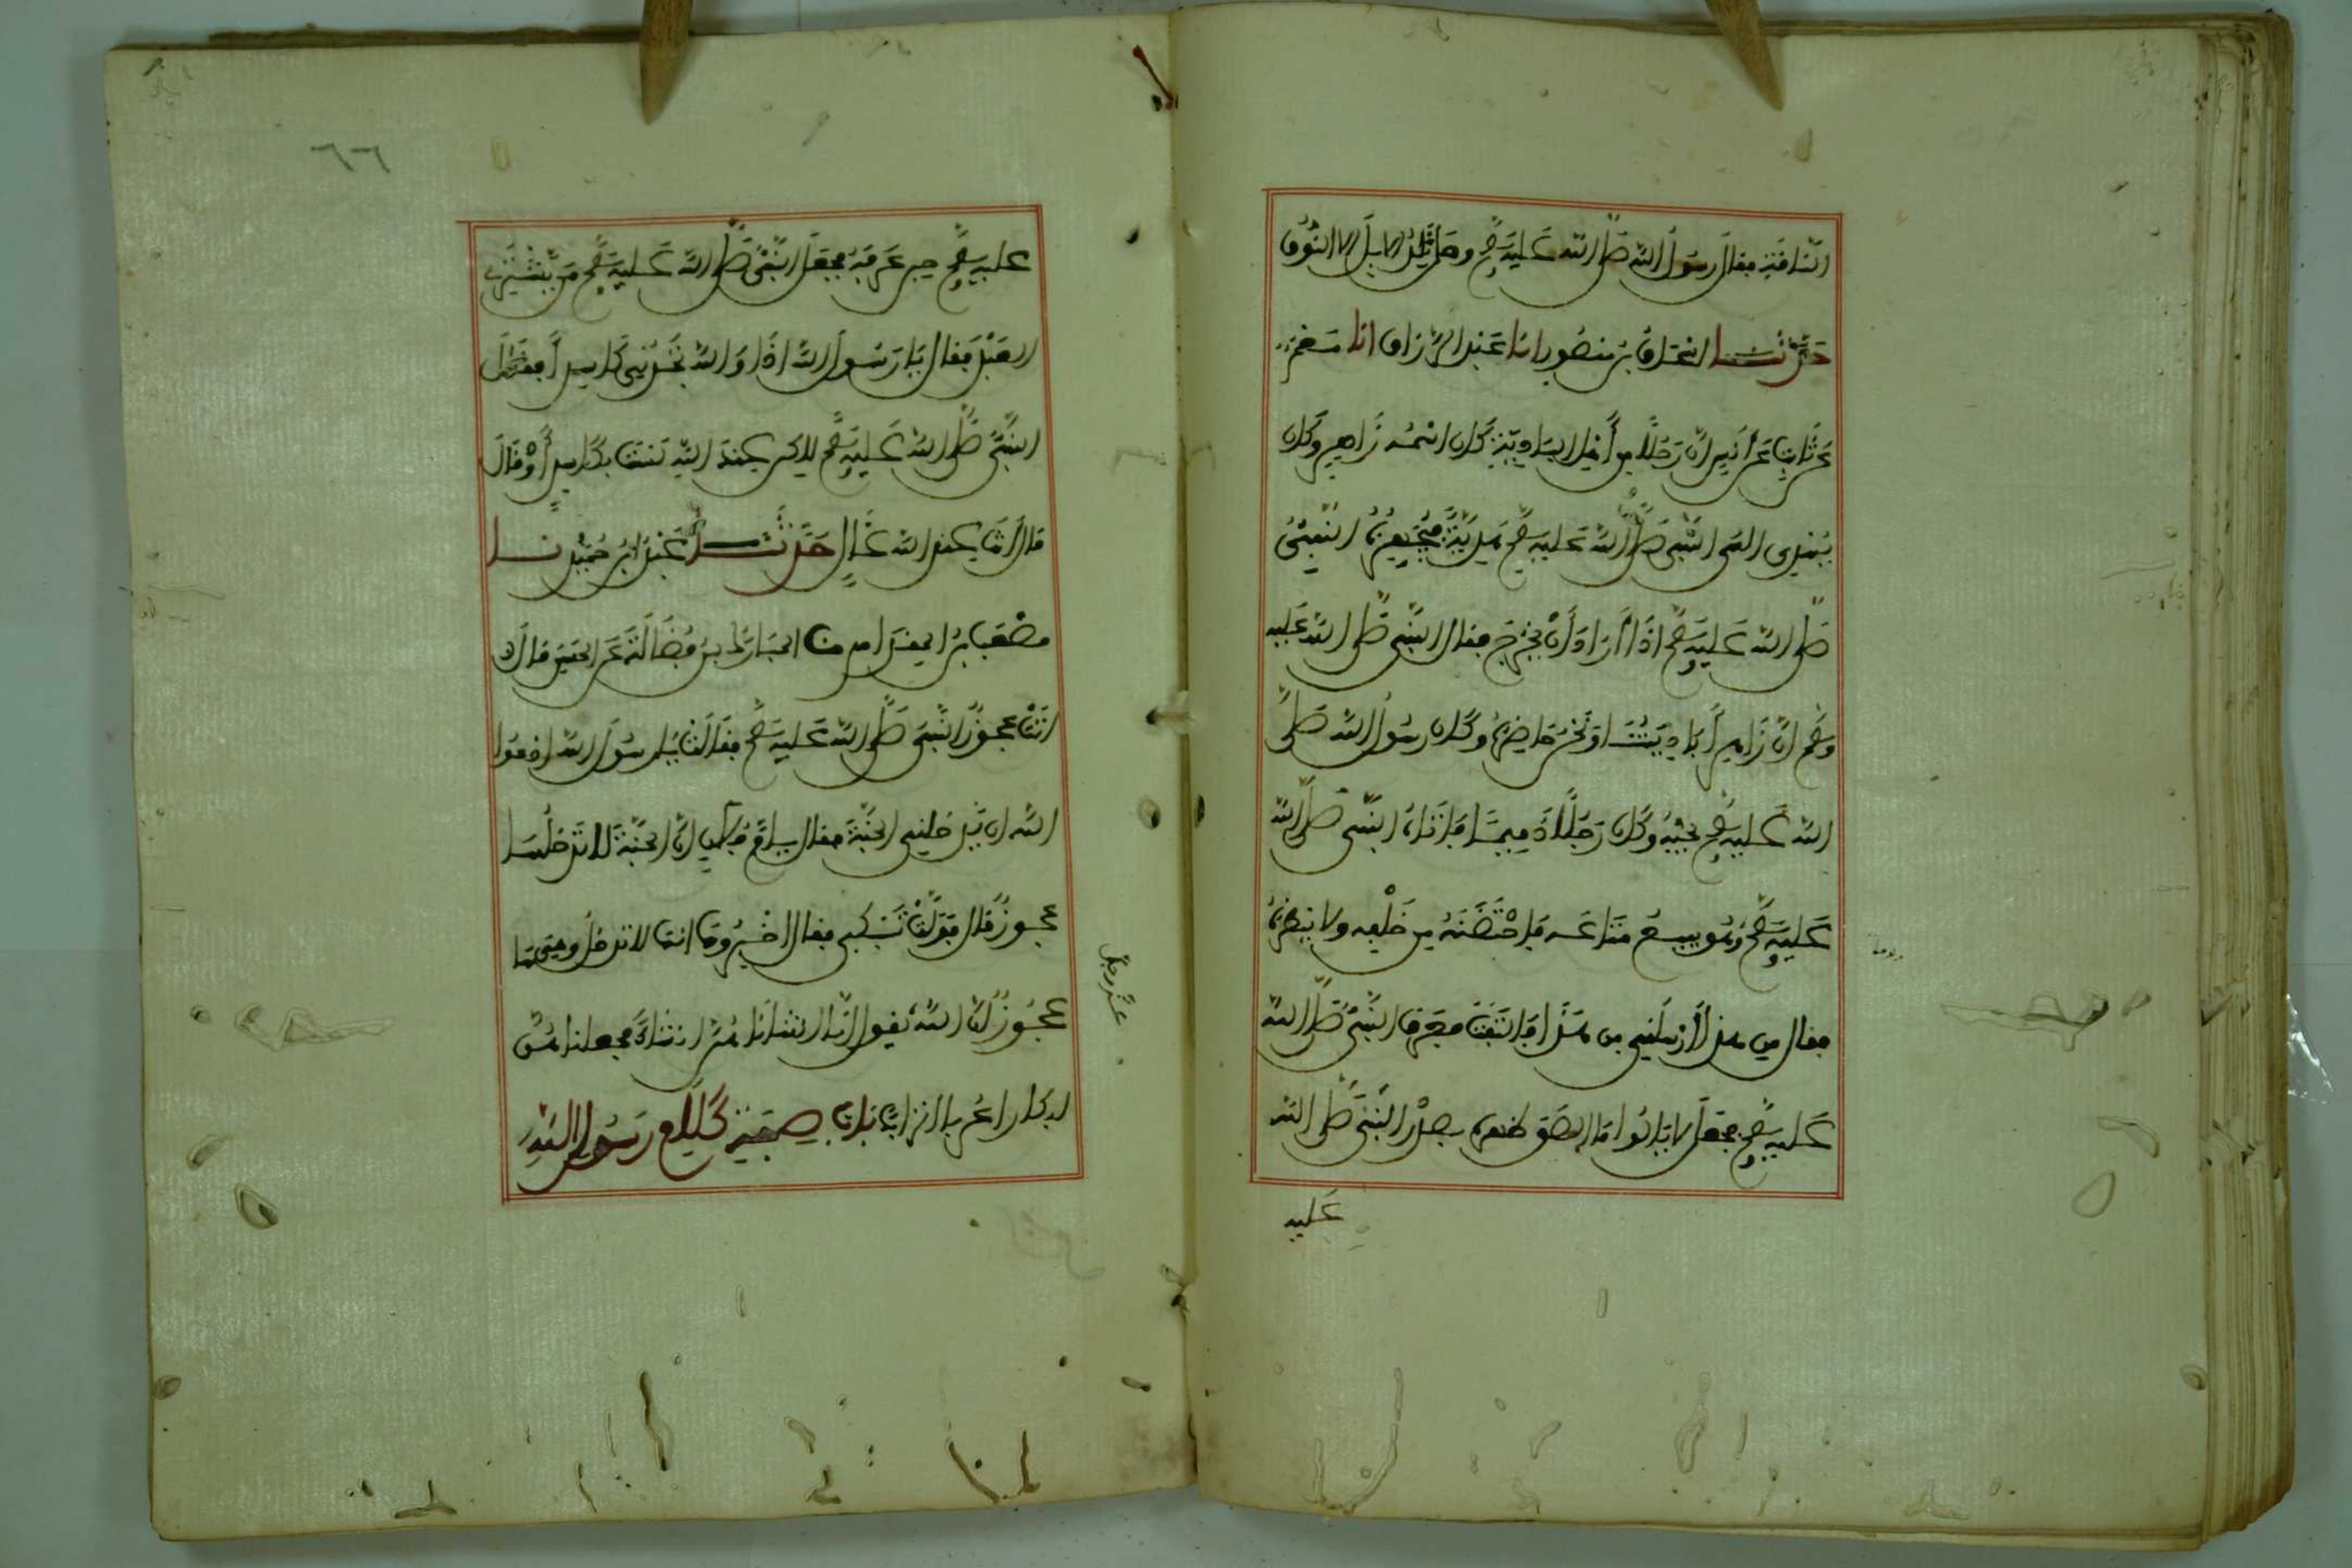 الناقة فقال رسول الله صلى الله عليه وسلم وهل تلد الابل الا النوق
حدثنا اسحاق بن منصور انا عبد الرزاق انا معمر
عن ثابت عن أنس ان رجلا من أهل البادية كان اسمه زاهر وكان
يهدي الى النبي صلى الله عليه وسلم هدية فيجهزه النبي
صلى الله عليه وسلم اذا أراد أن يخرج فقال النبي صلى الله عليه
وسلم ان زاهرا باديتنا ونحن حاضره وكان رسول الله صلى
الله عليه وسلم يحبه وكان رجلا دميما فأتاه النبي صلى الله
عليه وسلم وهو يبيع متاعه فاحتضنه من خلفه ولا يبصره
فقال من هذا أرسلني من هذا فالتفت فعرف النبي صلى الله
عليه وسلم فجعل لا يألوا ما الصق ظهره بصدر النبي صلى الله
عليه
٦٦
عليه وسلم حين عرفه فجعل النبي صلى الله عليه وسلم من يشتري
العبد فقال يا رسول الله اذا والله تجدني كاسدا فقال
النبي صلى الله عليه وسلم لاكن عند الله لست بكاسد أو قال
قال أنت عند الله غال حدثنا عبد ابن حميد نا
مصعب بن المقدام نا المبارك بن فضالة عن الحسن قال
اتت عجوز النبي صلى الله عليه وسلم فقالت يا رسول الله ادعوا
الله ان يدخلني الجنة فقال يا أم فلان ان الجنة لا تدخلها
عجوز قال فولت تبكي فقال اخبروها انها لا تدخل وهي
عجوز ان الله يقول انا انشاناهن انشاء فجعلناهن
ابكارا عربا اترابا باب صفة كلام رسول الله
عز وجل